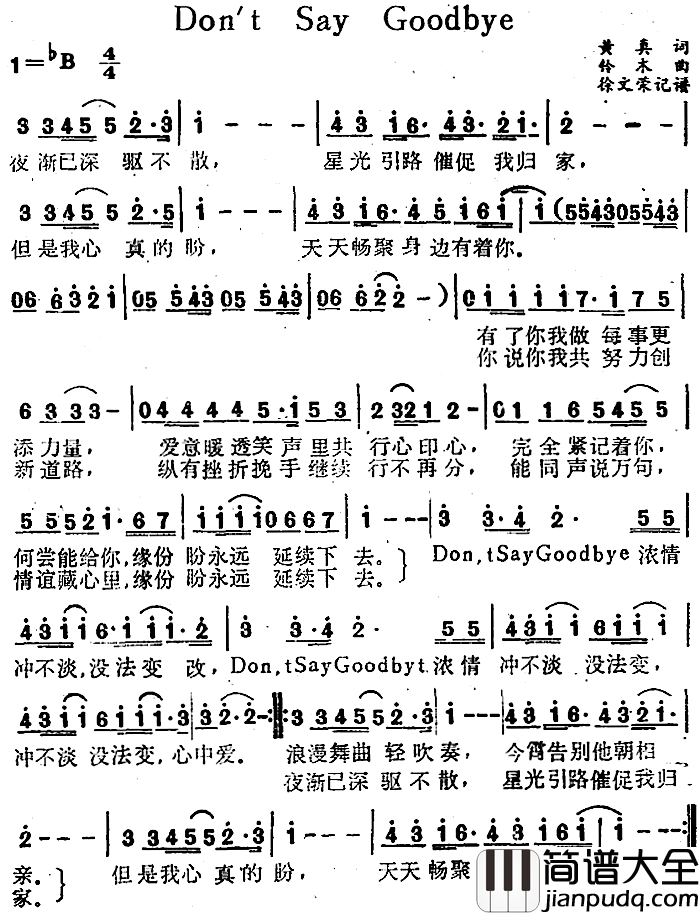 Don't Say Goodbye
1=♭B 4/4
黄真词
伶木曲
徐文荣记谱
3 3455 2·3 | 1 - - - | 43 16· 43· 21· | 2 - - - |
夜渐已深 驱不散， 星光引路 催促 我归家，
3 3455 2·5 | 1 - - - | 43 16· 45 161 | 1 (554305543 |
但是我心 真的盼， 天天畅聚身边有着你。
06 6321 | 05 5543 05 5543 | 06 622 - ) | 01 1117· 175 |
有了你我做 每事更
你说你我共 努力创
6 333 - | 0444 45·1 153 | 23212 - | 01 1654554 |
添力量， 爱意暖透笑声里共 行心印心， 完全紧记着你，
新道路， 纵有挫折挽手继续 行不再分， 能同声说万句，
5 5521· 67 | 11110667 | 1 - - 3 | 3·4 2· 55 |
何尝能给你，缘份 盼永远 延续下去。 Don,tSayGoodbye 浓情
情谊藏心里，缘份 盼永远 延续下去。
4311 6·111·2 | 3 3·4 2· 55 | 4311 6111 |
冲不淡，没法变 改，Don,tSayGoodbyt 浓情 冲不淡 没法变，
4311 6111·3 | 32·2 - :‖: 3 3455 2·3 | 1 - - - | 43 16· 43 21· |
冲不淡 没法变，心中爱。 浪漫舞曲 轻吹奏， 今宵告别他朝相
夜渐已深 驱不散， 星光引路催促我归
2 - - - | 3 3455 2·3 | 1 - - - | 43 16· 43 2161 - - :‖
亲。 但是我心 真的盼， 天天 畅聚
家。
简谱大全
jianpudq.com